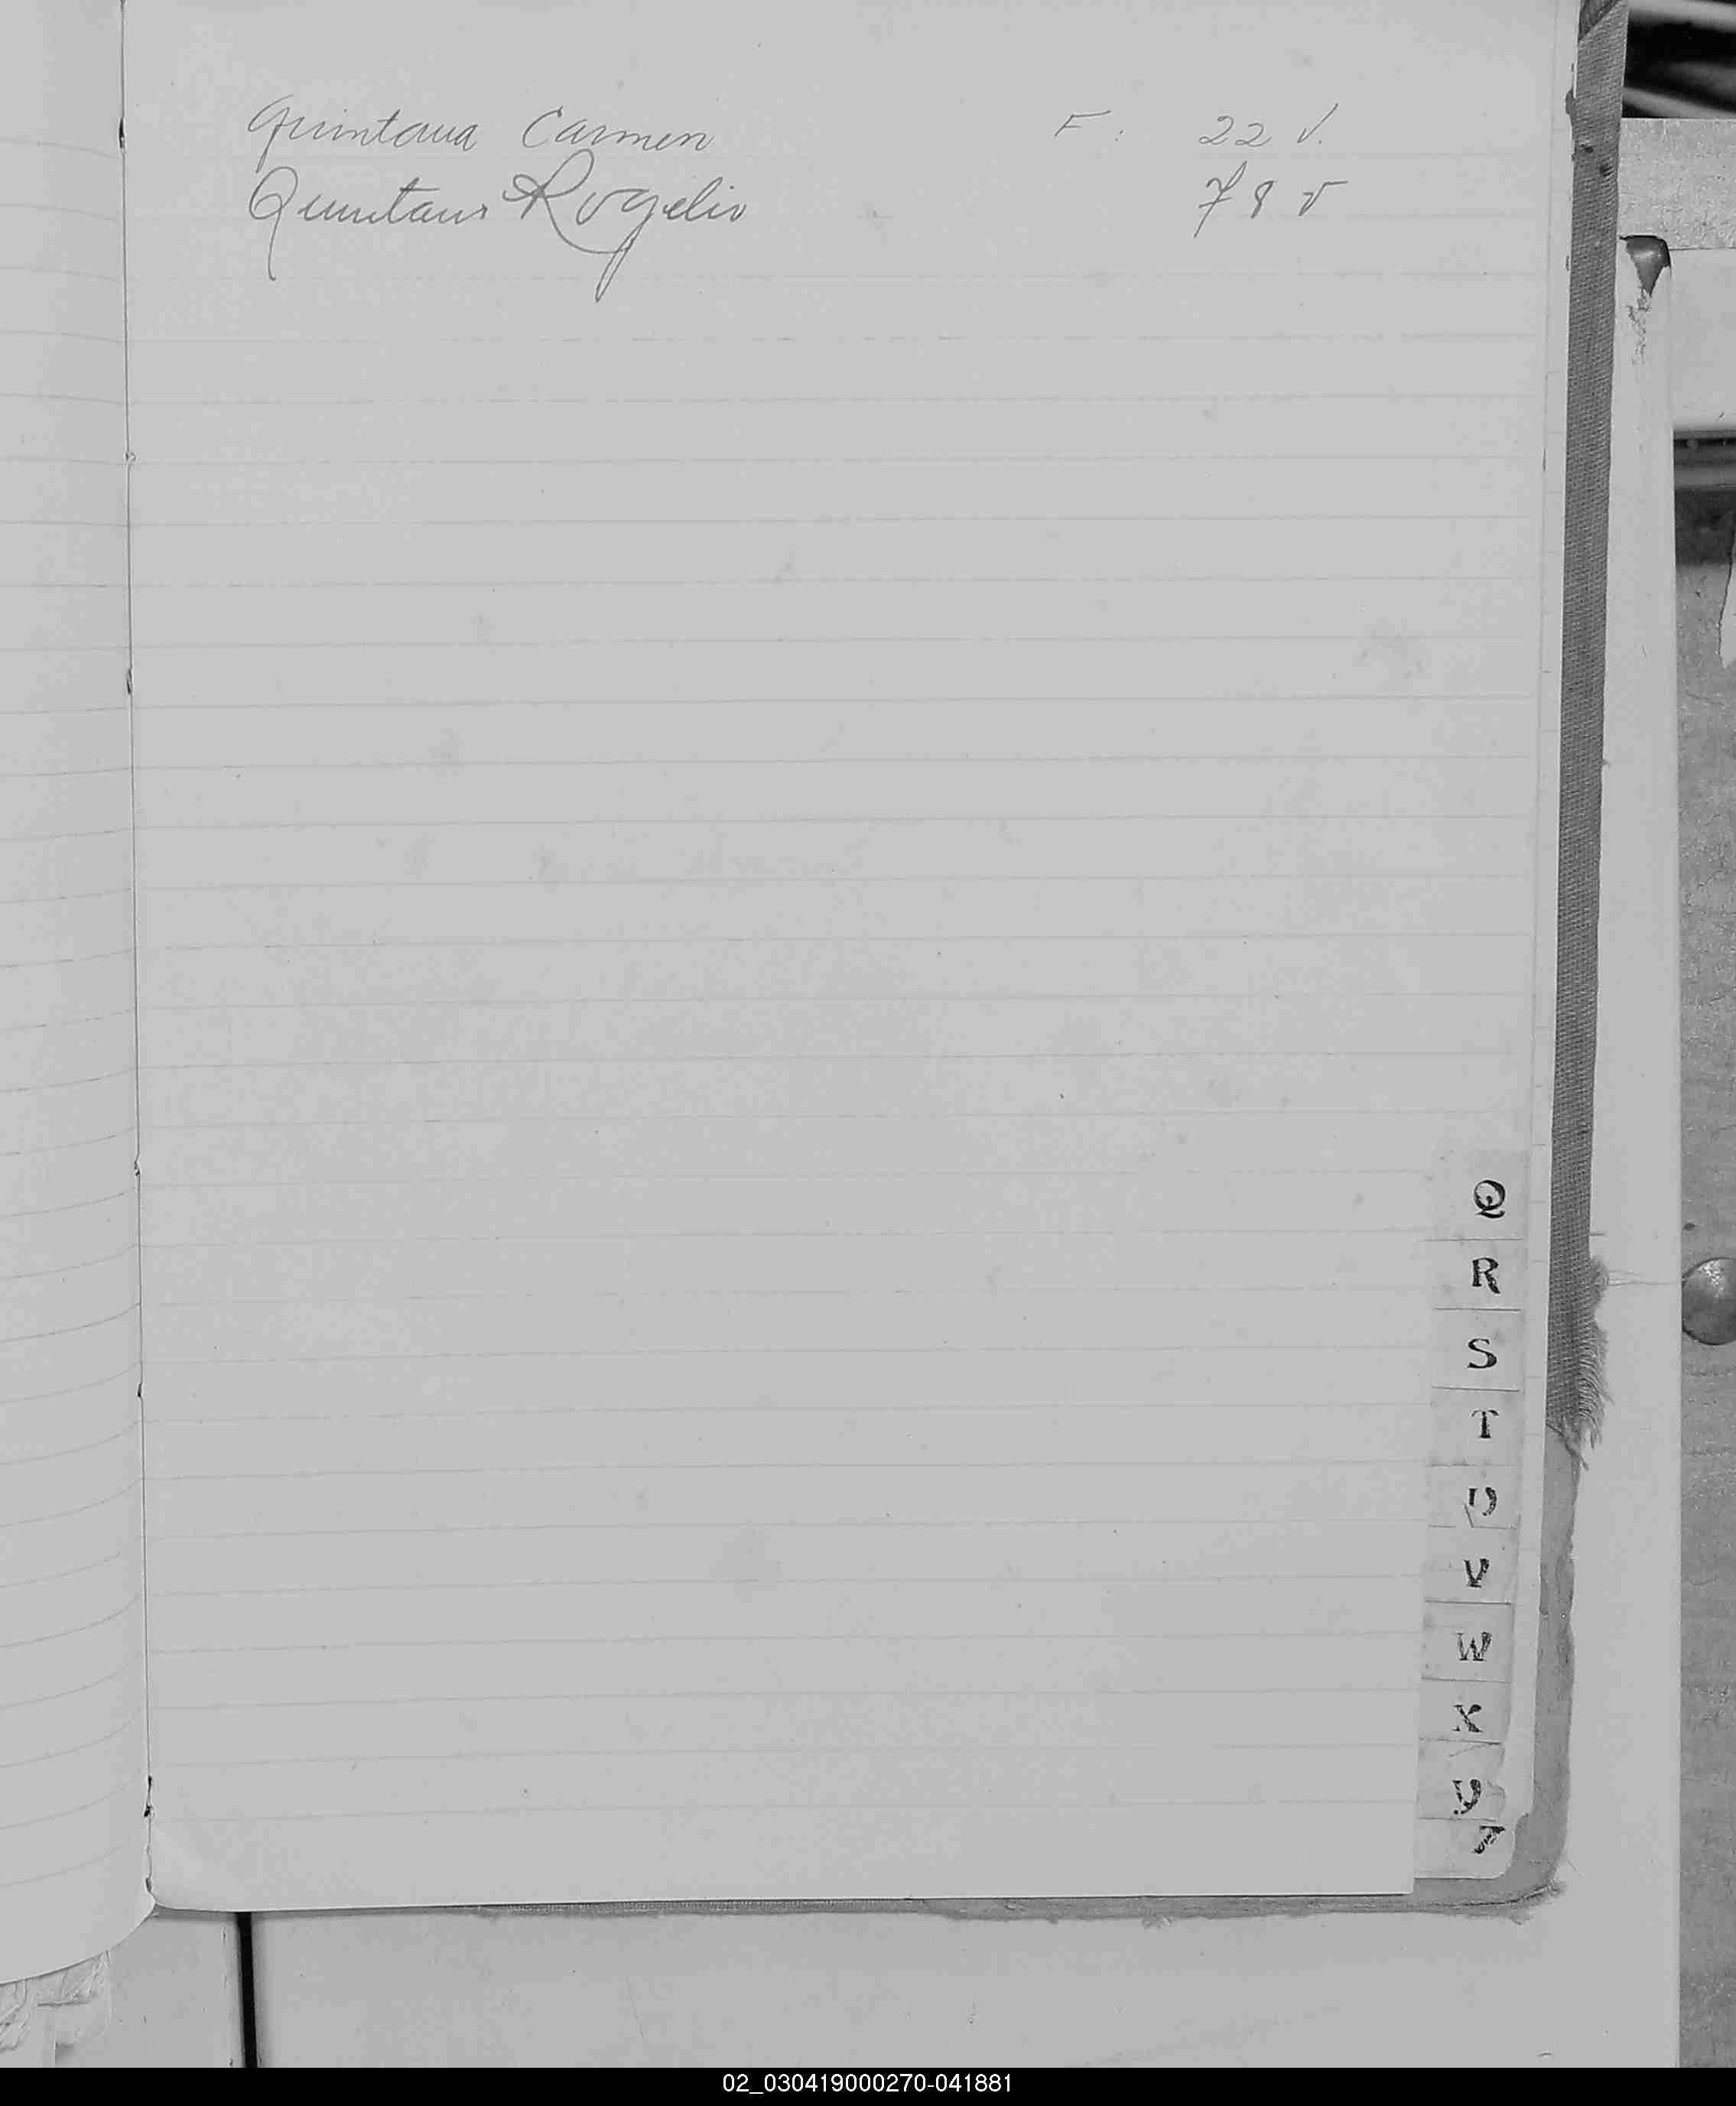 Quintana Carmen F: 22 V.
Quintana Rogelio 78 v
Q
R
S
T
U
V
W
X
Y
Z
02_030419000270-041881